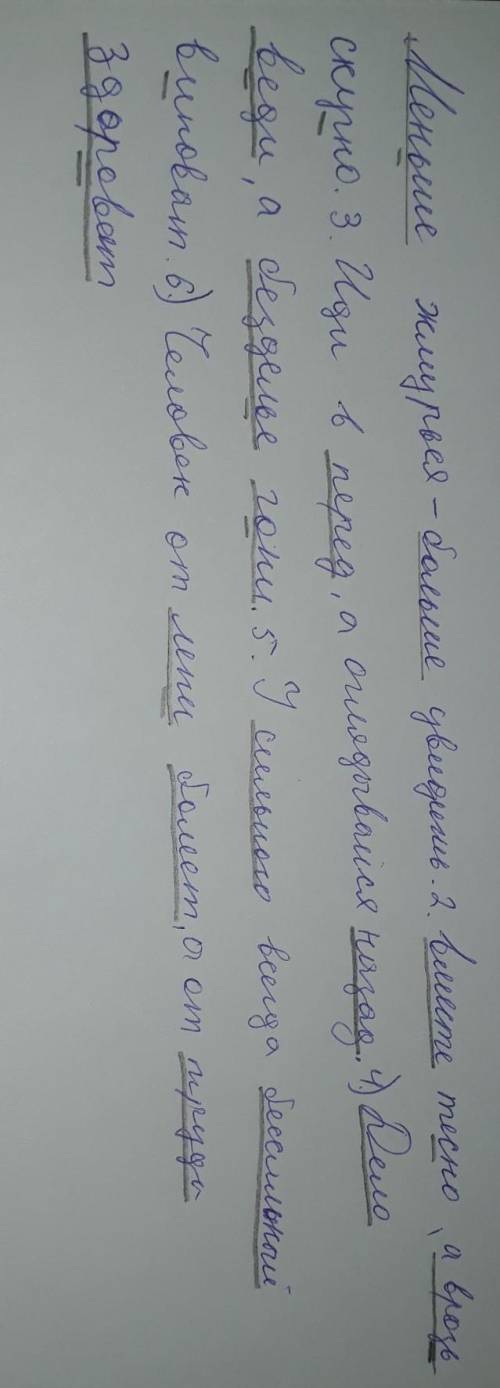 Меньше жмурься - больше увидешь. 2. Вместе тесно, а врозь
скучно. 3. Иди в перед, а оглядывайся назад. 4.) Дело
веди, а безделье гони. 5. У сильного всегда бессильный
виноват. 6.) Человек от лени болеет, а от труда
здоровеет